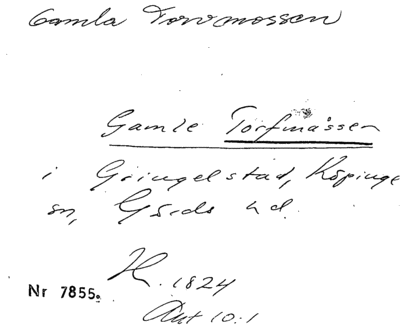 Gamla Torvmossen
Gamle Torfmåssen
i Gringelstad, Köpinge
sn, Gärds hd.
H. 1824
Nr 7855.
Akt 10:1